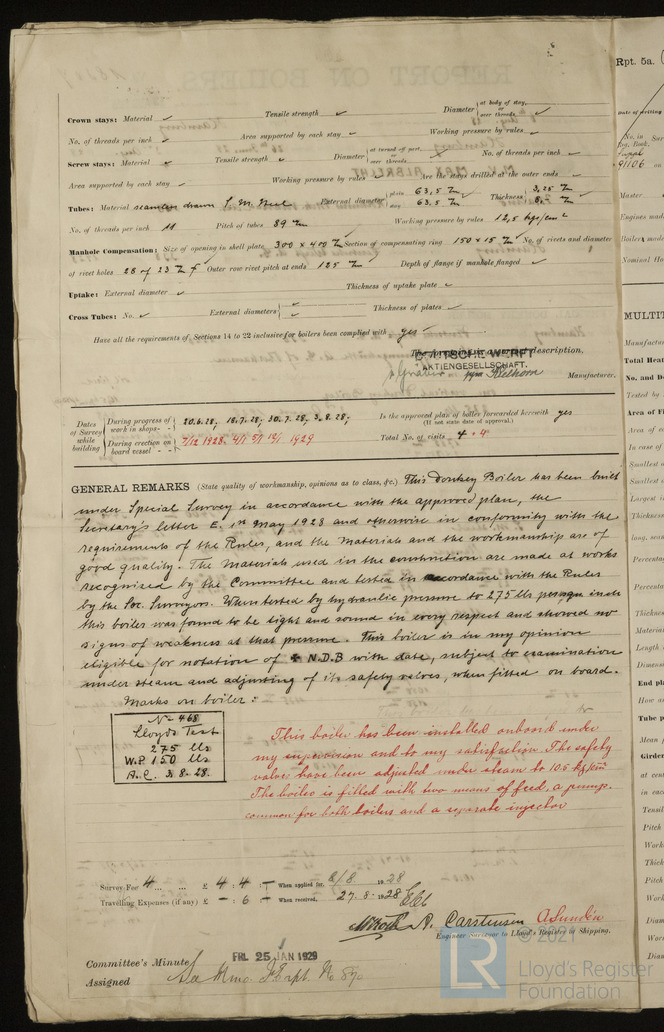 Crown stays: Material ✓ Tensile strength ✓ Diameter { at body of stay, or over threads ✓
No. of threads per inch ✓ Area supported by each stay ✓ Working pressure by rules ✓
Screw stays: Material ✓ Tensile strength ✓ Diameter { at turned off part, or over threads No. of threads per inch ✓
Area supported by each stay ✓ Working pressure by rules ✓ Are the stays drilled at the outer ends ✓
Tubes: Material seamless drawn S. M. Steel External diameter { plain 63,5 stay 63.5 Thickness { 3,25
No. of threads per inch 11 Pitch of tubes 89 Working pressure by rules 12,5 kgs/cm²
Manhole Compensation: Size of opening in shell plate 300 × 400 Section of compensating ring 150 × 15 No. of rivets and diameter
of rivet holes 28 of 23 Outer row rivet pitch at ends 125 Depth of flange if manhole flanged ✓
Uptake: External diameter ✓ Thickness of uptake plate ✓
Cross Tubes: No. ✓ External diameters { Thickness of plates ✓
Have all the requirements of Sections 14 to 22 inclusive for boilers been complied with yes
The foregoing is a correct description.
DEUTSCHE WERFT
AKTIENGESELLSCHAFT.
Manufacturer.
Dates of Survey while building
During progress of work in shops - - 20.6.28; 18.7.28; 30.7.28; 3.8.28;
Is the approved plan of boiler forwarded herewith yes
(If not state date of approval.)
During erection on board vessel - - 1929
Total No. of visits 4 + 4
GENERAL REMARKS (State quality of workmanship, opinions as to class, &c.) This Donkey Boiler has been built
under Special Survey in accordance with the approved plan, the
Secretary's letter E. 1st May 1928 and otherwise in conformity with the
requirements of the Rules, and the materials and the workmanship are of
good quality. The materials used in the construction are made at works
recognised by the Committee and tested in accordance with the Rules
by the Soc. Surveyors. When tested by hydraulic pressure to 275 lbs per sq. inch
this boiler was found to be tight and sound in every respect and showed no
signs of weakness at that pressure. This boiler is in my opinion
eligible for notation of ✠ N.D.B with date, subject to examination
under steam and adjusting of its safety valves, when fitted on board.
Marks on boiler:
No 468
Lloyds Test
275 lbs
W.P. 150 lbs
A.C. 3.8.28.
This boiler has been installed onboard under
my supervision and to my satisfaction. The safety
valve have been adjusted under steam to 10.5 kg/cm²
The boiler is fitted with two means of feed, a pump
common for both boilers and a separate injector
Survey Fee £ 4 : 4 : - When applied for, 1928
Travelling Expenses (if any) £ - : 6 : - When received, 27.8.1928
A. Carstensen A Sundén
Engineer Surveyor to Lloyd's Register of Shipping.
Committee's Minute FRI. 25 JAN 1929
Assigned
© 2021
LR Lloyd's Register
Foundation
Rpt. 5a.
Date of writing
No. in
Reg. Book.
91106 on
Master
Engines made
Boilers made
MULTI
Total Heat
No. and D
Tested by
Area of F
Area of
In case of
Smallest
Smallest
Largest
Thickness
long. seam
Percenta
Percenta
Thickne
Material
Length
Dimens
End pla
How a
Tube p
Mean p
Girder
at cent
in eac
Tensil
Pitch
Work
Thick
Pitch
Work
Diam
Work
Diam